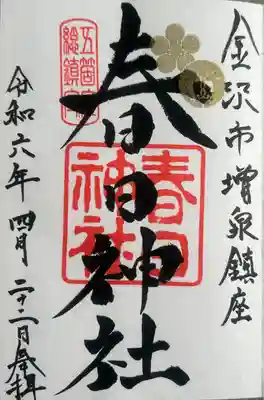 金沢市増泉鎮座
春日神社
春日神社
総鎮守
令和六年四月二十二日奉拝